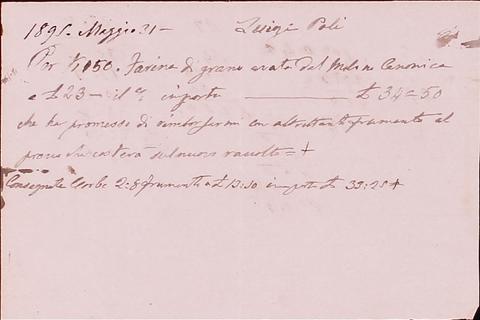 1895 Maggio 31 — Luigi Poli
Per 150. Farina di grano avuta dal Molino Canonica
a £ 23 — il importa — £ 34=50
che ha promesso di rimborsarmi in altrettanto frumento al
prezzo che costerà sul nuovo raccolto = +
Consegnate Corbe 2:8 frumento a £ 13:50 importo £ 33:25 +